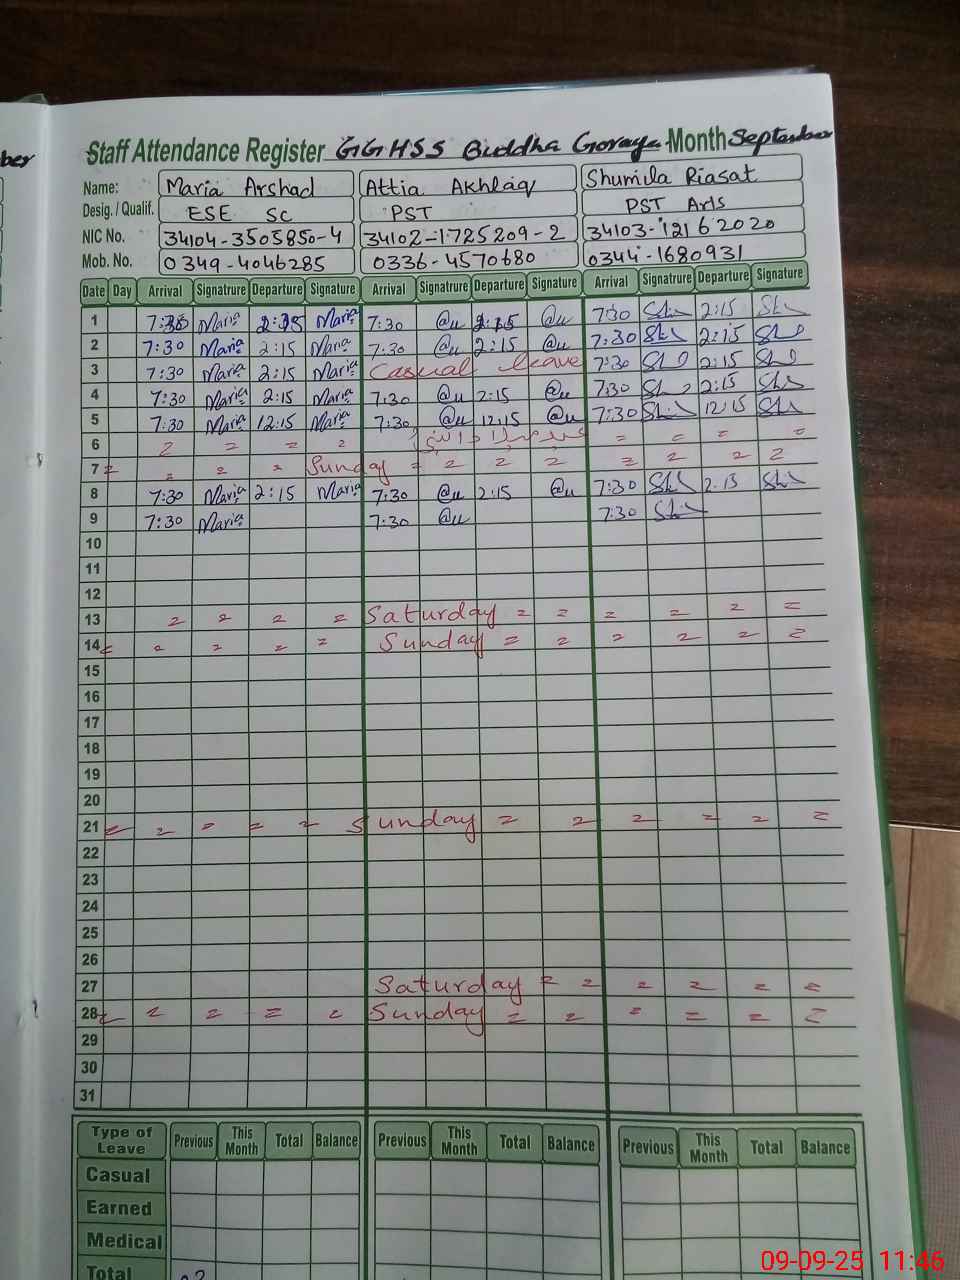 ber
Staff Attendance Register GGHSS Buddha Goraya Month September
Name: Maria Arshad Attia Akhlaq Shumila Riasat
Desig. / Qualif. ESE Sc PST PST Arts
NIC No. 34104-3505850-4 34102-1725209-2 34103-1216 2020
Mob. No. 0349-4046285 0336-4570680 0344-1680931
Date Day Arrival Signatrure Departure Signature Arrival Signatrure Departure Signature Arrival Signatrure Departure Signature
1 7:30 Maria Maria 7:30 7:30 2:15
2 7:30 Maria 2:15 Maria 7:30 2:15 7:30 2:15
3 7:30 Maria 2:15 Maria Casual leave 7:30 2:15
4 7:30 Maria 2:15 Maria 7:30 2:15 7:30 2:15
5 7:30 Maria 12:15 Maria 7:30 12:15 7:30 12:15
6 = = = = = = = =
7 = = = = Sunday = = = = = = = =
8 7:30 Maria 2:15 Maria 7:30 2:15 7:30 2:15
9 7:30 Maria 7:30 7:30
10
11
12
13 = = = = Saturday = = = = = =
14 = = = = = Sunday = = = = = =
15
16
17
18
19
20
21 = = = = = Sunday = = = = = =
22
23
24
25
26
27 Saturday = = = = = =
28 = = = = = Sunday = = = = = =
29
30
31
Type of Leave Previous This Month Total Balance Previous This Month Total Balance Previous This Month Total Balance
Casual
Earned
Medical
Total
09-09-25 11:46